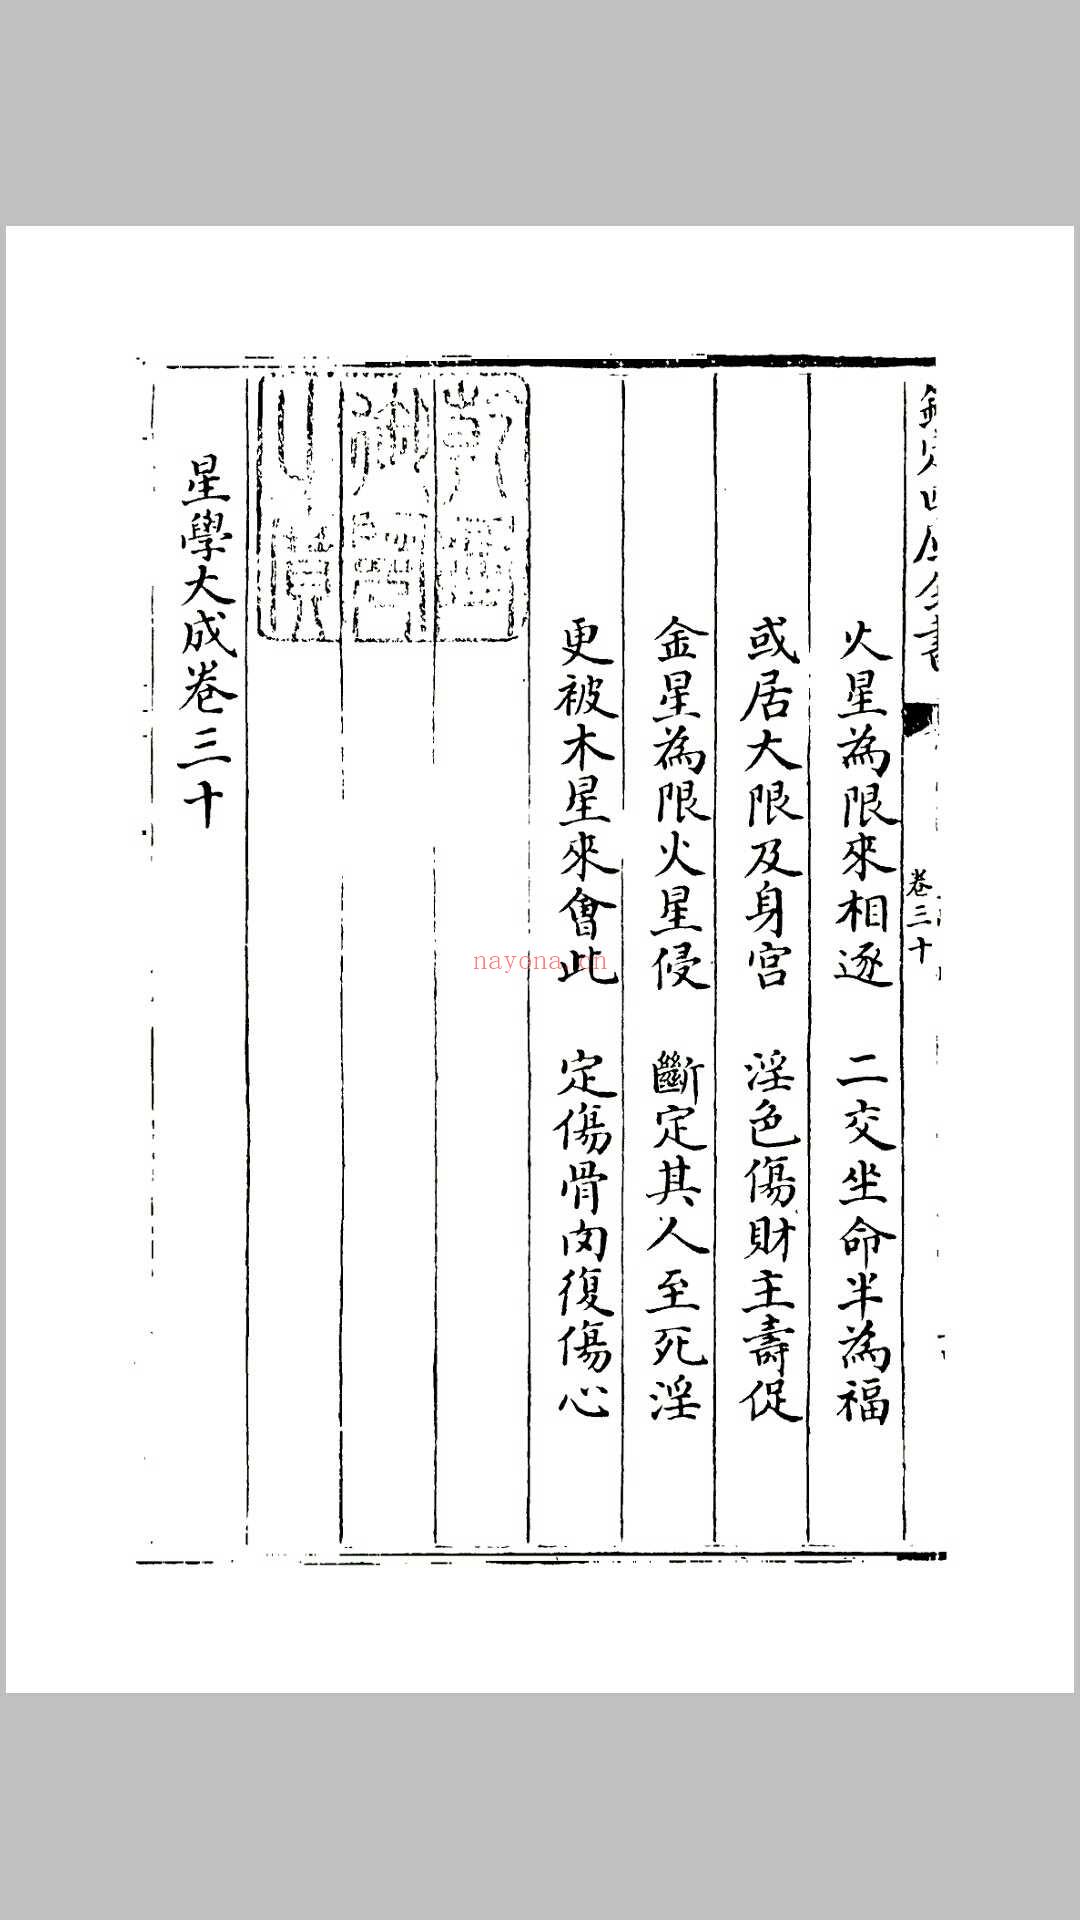 欽定四庫全書
卷三十
火星為限來相逐　二交坐命半為福
或居大限及身宮　淫色傷財主壽促
金星為限火星侵　斷定其人至死淫
更被木星來會此　定傷骨肉復傷心
乾隆御覽之寶
星學大成卷三十
nayona.cn